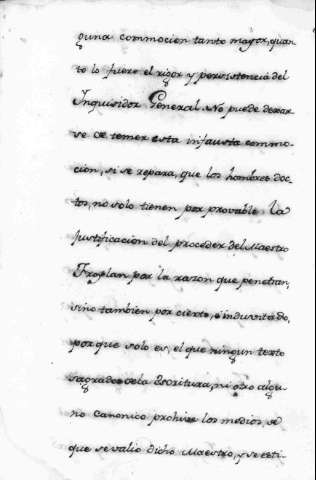 guna commocion tanto mayor, quan-
to lo fuere el rigor y persistencia del
Inquisidor General. No puede dexar-
se de temer esta infausta commo-
cion, si se repara, que los hombres doc-
tos, no solo tienen por provable la
justificacion del proceder del Maestro
Froylan por la razon que penetran,
sino tambien por cierto, è induvitado,
porque solo es, el que ningun texto
sagrado de la Escritura, ni otro algu-
no canonico prohive los medios, de
que se valio dicho Maestro, y se esti-